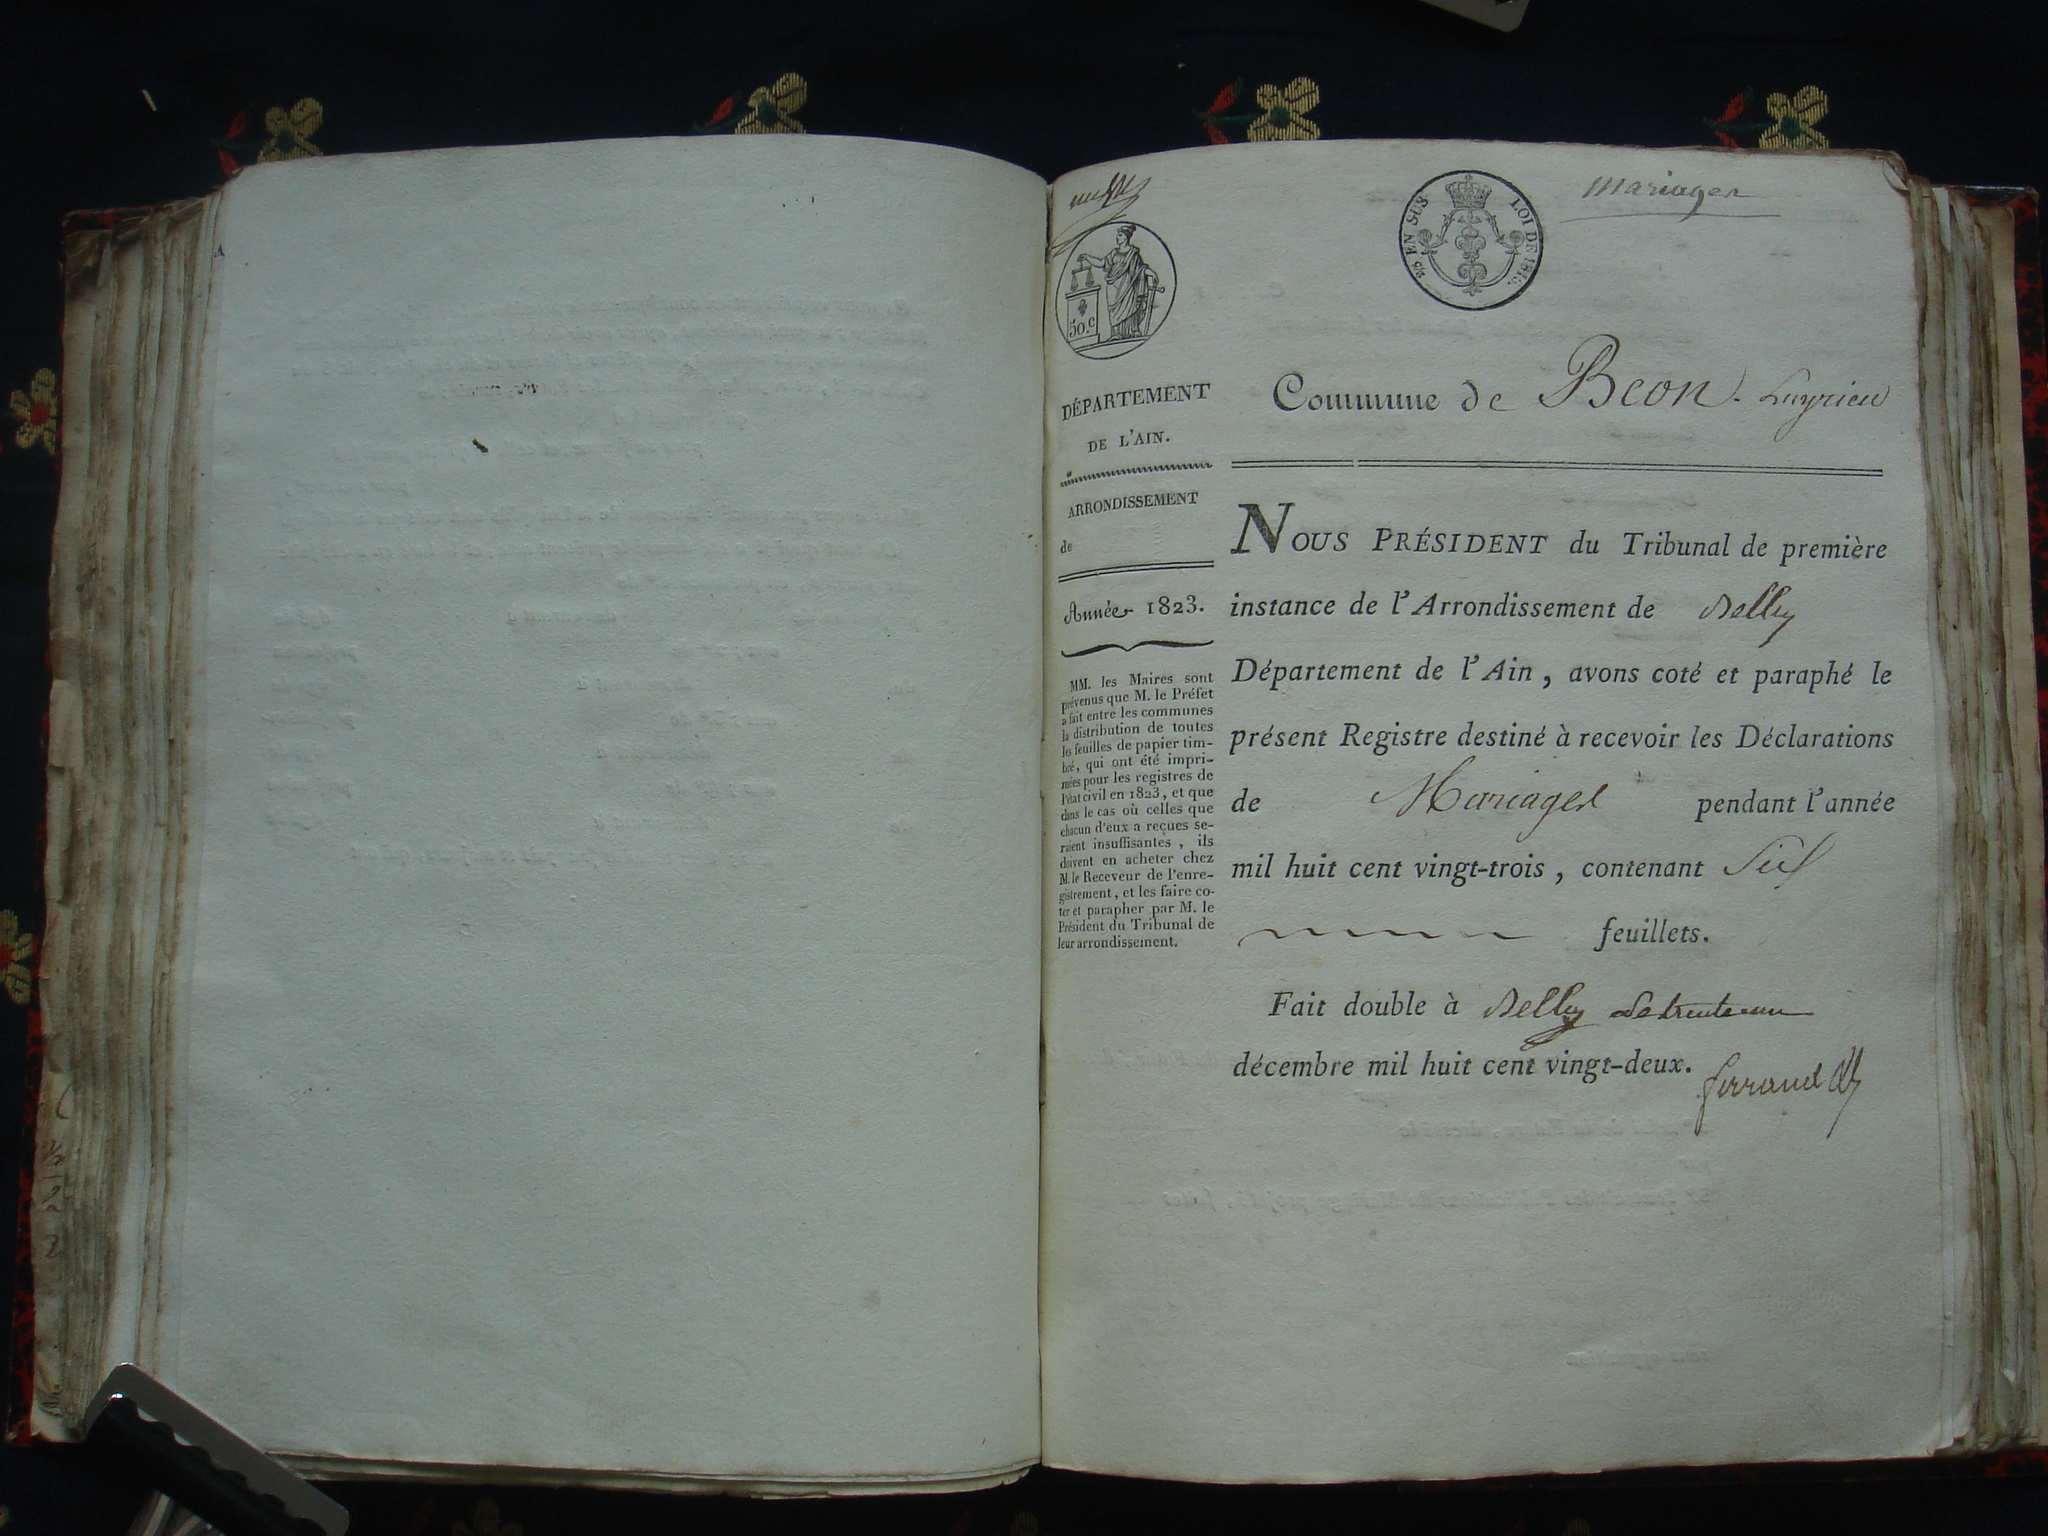 Mariages
EN SUS LOI DE 1816.
50.c
DÉPARTEMENT
DE L'AIN.
ARRONDISSEMENT
de
Année 1823.
MM. les Maires sont
prévenus que M. le Préfet
a fait entre les communes
la distribution de toutes
les feuilles de papier tim-
bré, qui ont été impri-
mées pour les registres de
l'état civil en 1823, et que
dans le cas où celles que
chacun d'eux a reçues se-
raient insuffisantes, ils
doivent en acheter chez
M. le Receveur de l'enre-
gistrement, et les faire co-
ter et parapher par M. le
Président du Tribunal de
leur arrondissement.
Commune de Beon. Luyrieu
NOUS PRÉSIDENT du Tribunal de première
instance de l'Arrondissement de Belley
Département de l'Ain, avons coté et paraphé le
présent Registre destiné à recevoir les Déclarations
de Mariages pendant l'année
mil huit cent vingt-trois, contenant Six
feuillets.
Fait double à Belley le trente un
décembre mil huit cent vingt-deux.
ferrand